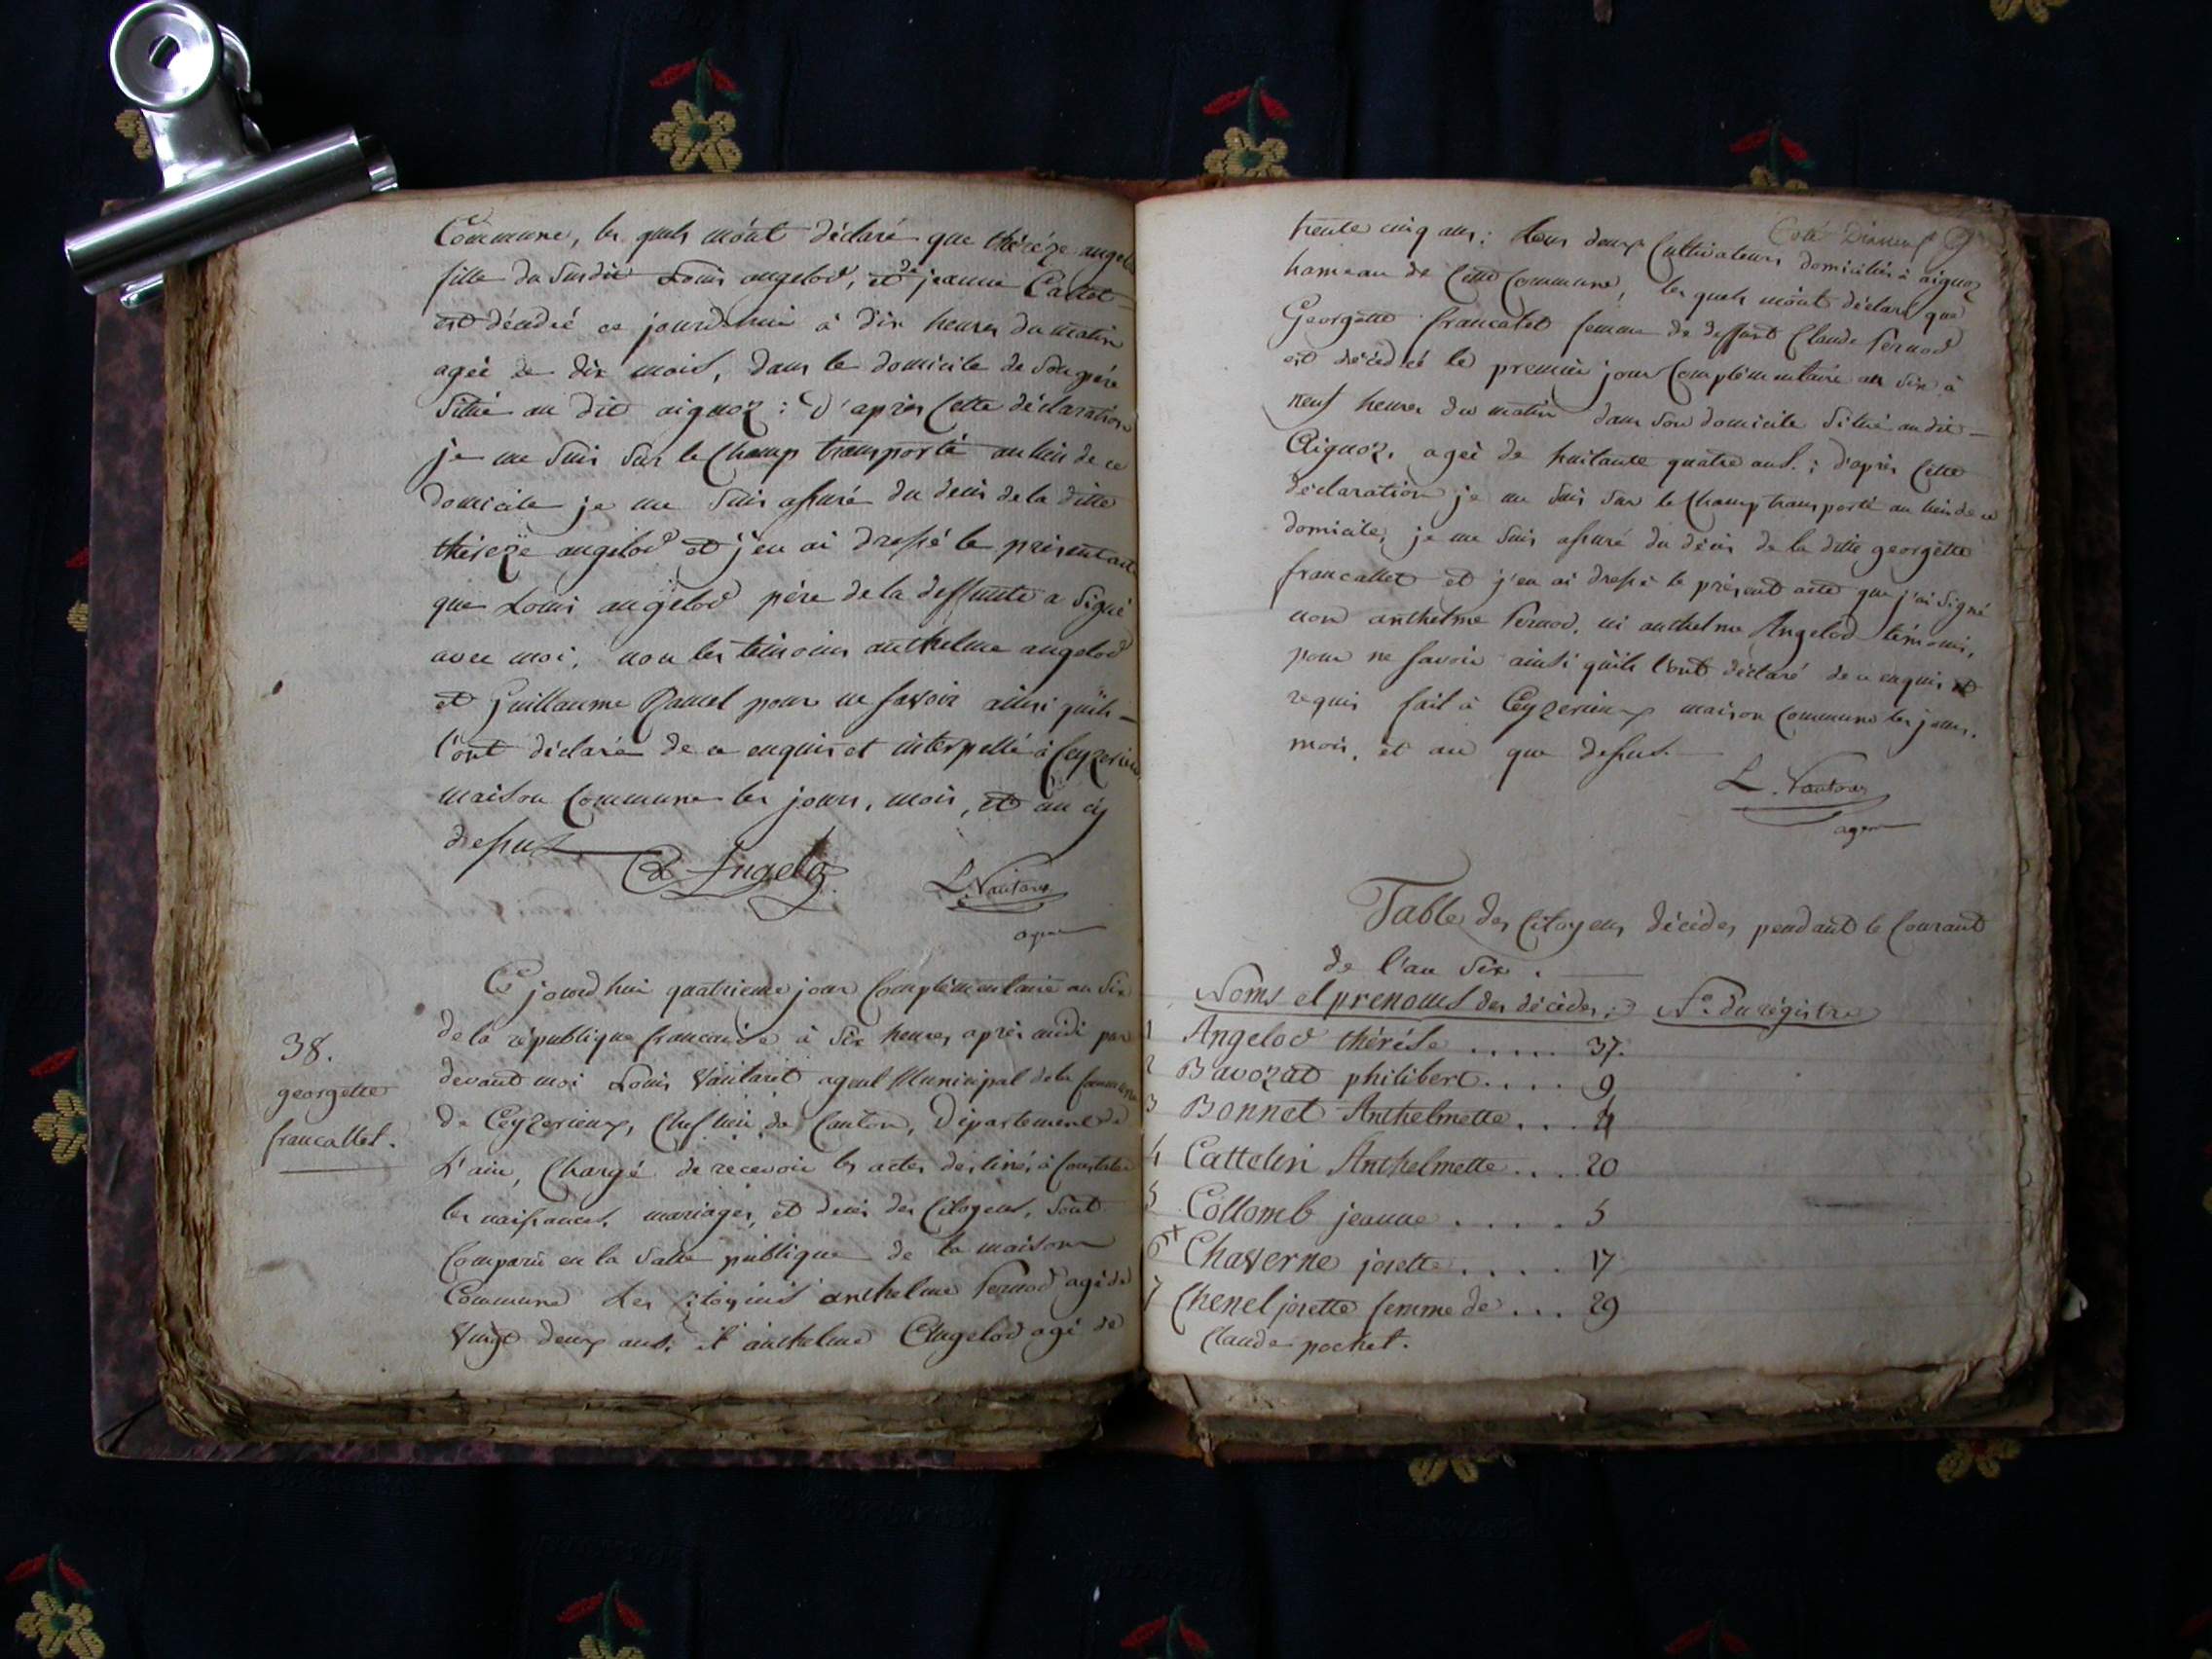 Commune, les quels m'ont déclaré que thérèze angelod
fille du susdit Louis angelod, et de jeanne Cattet
est décédée ce jourdhui à dix heures du matin
agée de dix mois, dans le domicile de son père
situé au dit aignoz : d'après cette déclaration
je me suis sur le Champ transporté au lieu de ce
domicile je me suis assuré du décès de la ditte
thérèze angelod et j'en ai dressé le présent acte
que Louis angelod père de la deffunte a signé
avec moi, non les témoins anthelme angelod
et Guillaume pour ne savoir ainsi qu'ils
l'ont déclaré de ce enquis et interpellé à Ceyzerieux
maison Commune les jours, mois, et an cy
dessus
L. Angeloz
L. Vautaret
agent
38.
georgette
francallet.
Ce jourdhui quatrieme jour Complémentaire an six
de la république francaise à six heures après midi par
devant moi Louis Vautaret agent Municipal de la Commune
de Ceyzerieux, Chef lieu de Canton, Département de
L'ain, Chargé de recevoir les actes destinés à Constater
les naissances, mariages, et décès des Citoyens, sont
Comparu en la salle publique de la maison
Commune Les Citoyens anthelme Pernod agé de
Vingt deux ans, et anthelme Angelod agé de
trente cinq ans ; tous deux Cultivateurs domiciliés à aignoz
hameau de Cette Commune, les quels m'ont déclaré que
Georgette francalet femme de deffunt Claude Pernod
est décédée le premier jour Complémentaire an six à
neuf heures du matin dans son domicile situé au dit
Aignoz, agée de huitante quatre ans. ; d'après Cette
déclaration je me suis sur le Champ transporté au lieu de ce
domicile, je me suis assuré du décès de la ditte georgette
francallet et j'en ai dressé le présent acte que j'ai signé
non anthelme Pernod, ni anthelme Angelod témoins,
pour ne savoir ainsi qu'ils l'ont déclaré de ce enquis et
requis fait à Ceyzerieux maison Commune les jours,
mois, et an que dessus.
L. Vautaret
agent
Table des Citoyens décédés pendant le Courant
de l'an six.
Noms et prenoms des décédés ; No. du régistre
1 Angelod thérèse ..... 37.
2 Bavozat philibert.... 9
3 Bonnet Anthelmette... 4
4 Cattelin Anthelmette.... 20
5 Collomb jeanne ..... 5
6 Chaverne josette ..... 17
7 Chenel josette femme de ... 29
Claude pochet.